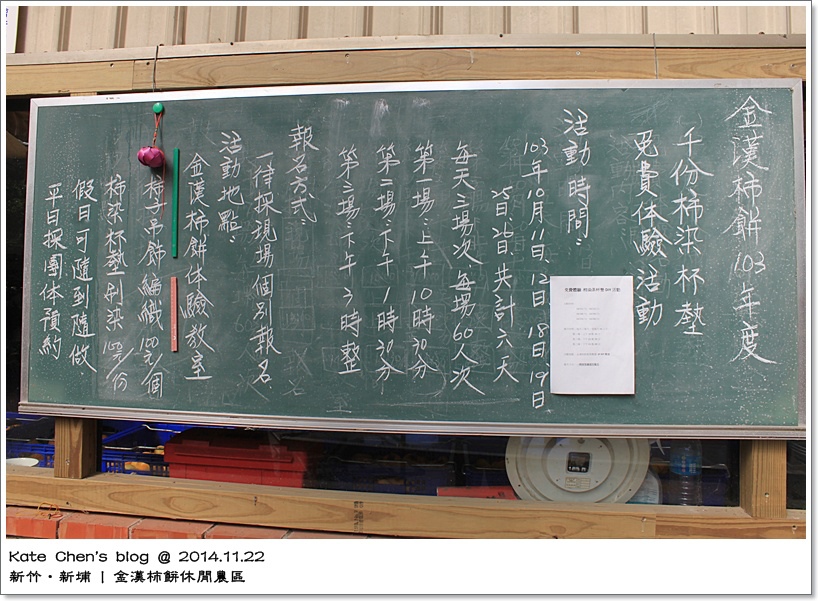 金漢柿餅103年度
千份柿染杯墊
免費体驗活動
活動時間：
103年10月11日、12日、18日、19日
25日、26日、共計六天
每天三場次、每場60人次
第一場：上午10時30分
第二場：下午1時30分
第三場：下午3時整
報名方式：
一律採現場個別報名
活動地點：
金漢柿餅体驗教室
柿子吊飾編織100元/個
柿染杯墊刷染100元/份
假日可隨到隨做
平日採團体預約
Kate Chen's blog @ 2014.11.22
新竹・新埔 | 金漢柿餅休閒農區